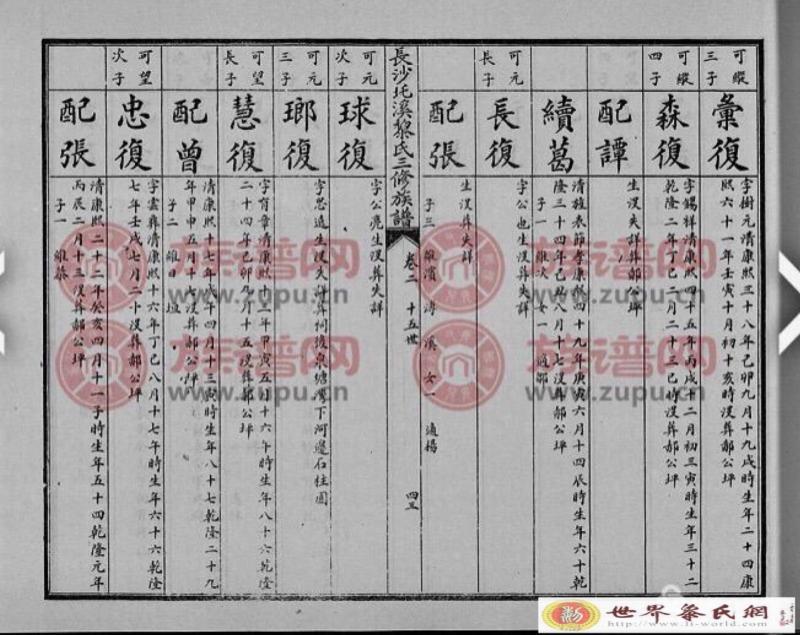 可縱
三子
彙復
字樹元清康熙三十八年己卯九月十九戌時生年二十四康
熙六十一年壬寅十月初十亥時没葬郝公坪
可縱
四子
森復
字錫祥清康熙四十五年丙戌十二月初三寅時生年三十二
乾隆二年丁巳二月二十三巳時没葬郝公坪
配譚
生没失詳葬郝公坪
續葛
清雍表節孝康熙四十九年庚寅六月十四辰時生年六十乾
隆三十四年己丑八月十七没葬郝公坪
子一 維次 女一 適鄒
可元
長子
長復
字公也生没葬失詳
配張
生没葬失詳
子三 維濱 溥 溪 女一 適楊
長沙坨溪黎氏三修族譜
卷二 十五世
四三
可元
次子
球復
字公亮生没葬失詳
可元
三子
瑯復
字思遠生没失詳葬祠後泉塘灣下河邊石柱園
可望
長子
慧復
字育章清康熙十三年甲寅五月十六午時生年八十六乾隆
二十四年己卯九月十五没葬郝公坪
配曾
清康熙十七年戊午四月十三寅時生年八十七乾隆二十九
年甲申五月十七没葬郝公坪
子二 維日 垣
可望
次子
忠復
字雲彝清康熙十六年丁巳八月十七午時生年六十六乾隆
七年壬戌七月二十没葬郝公坪
配張
清康熙二十二年癸亥四月十一子時生年五十四乾隆元年
丙辰二月十三没葬郝公坪
子一 維恭
族谱网
www.zupu.cn
族谱网
www.zupu.cn
族谱网
www.zupu.cn
世界黎氏網
http://www.li-world.com